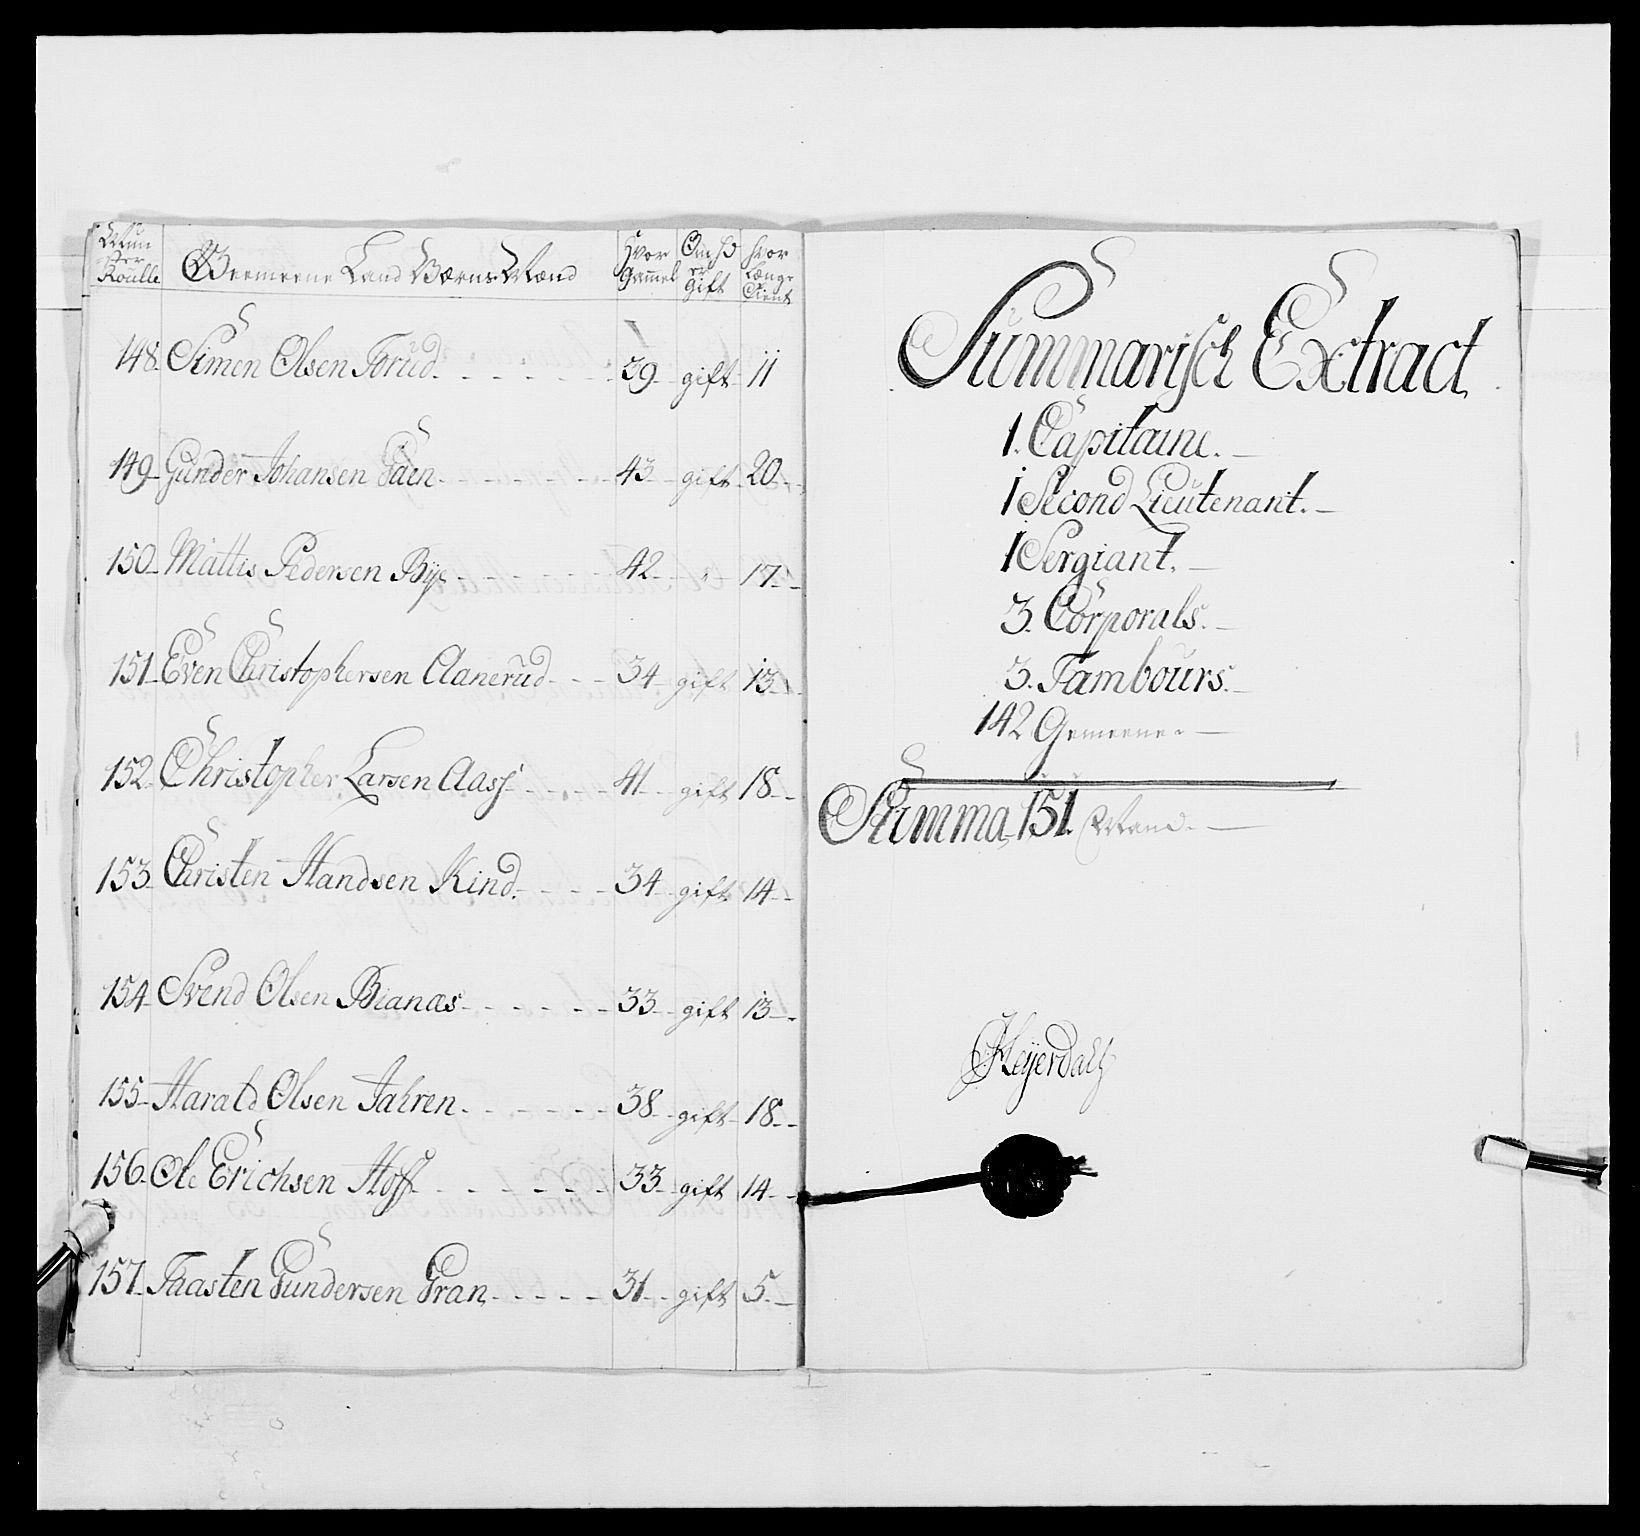 Num per Roulle | Gemeene Land Værns Mænd | Hvor Gammel | Om hd er Gift | hvor Længe Tient
148 Simen Olsen Torud 39 gift 11
149 Gunder Johansen Gaen 43 gift 20
150 Mattis Pedersen Bye 42 " 17
151 Even Christophersen Aanerud 34 gift 13
152 Christopher Larsen Aass 41 gift 18
153 Christen Handsen Kind 34 gift 14
154 Svend Olsen Bianæs 33 gift 13
155 Harald Olsen Jahren 38 gift 18
156 Ole Erichsen Hoff 33 gift 14
157 Taasten Gundersen Gran 31 gift 5
Summarisch Extract
1. Capitaine.
1 Second Lieutenant.
1 Sergiant.
3. Corporals.
3. Tambours.
142 Gemeene.
Summa 151. Mand.
Heyerdahl